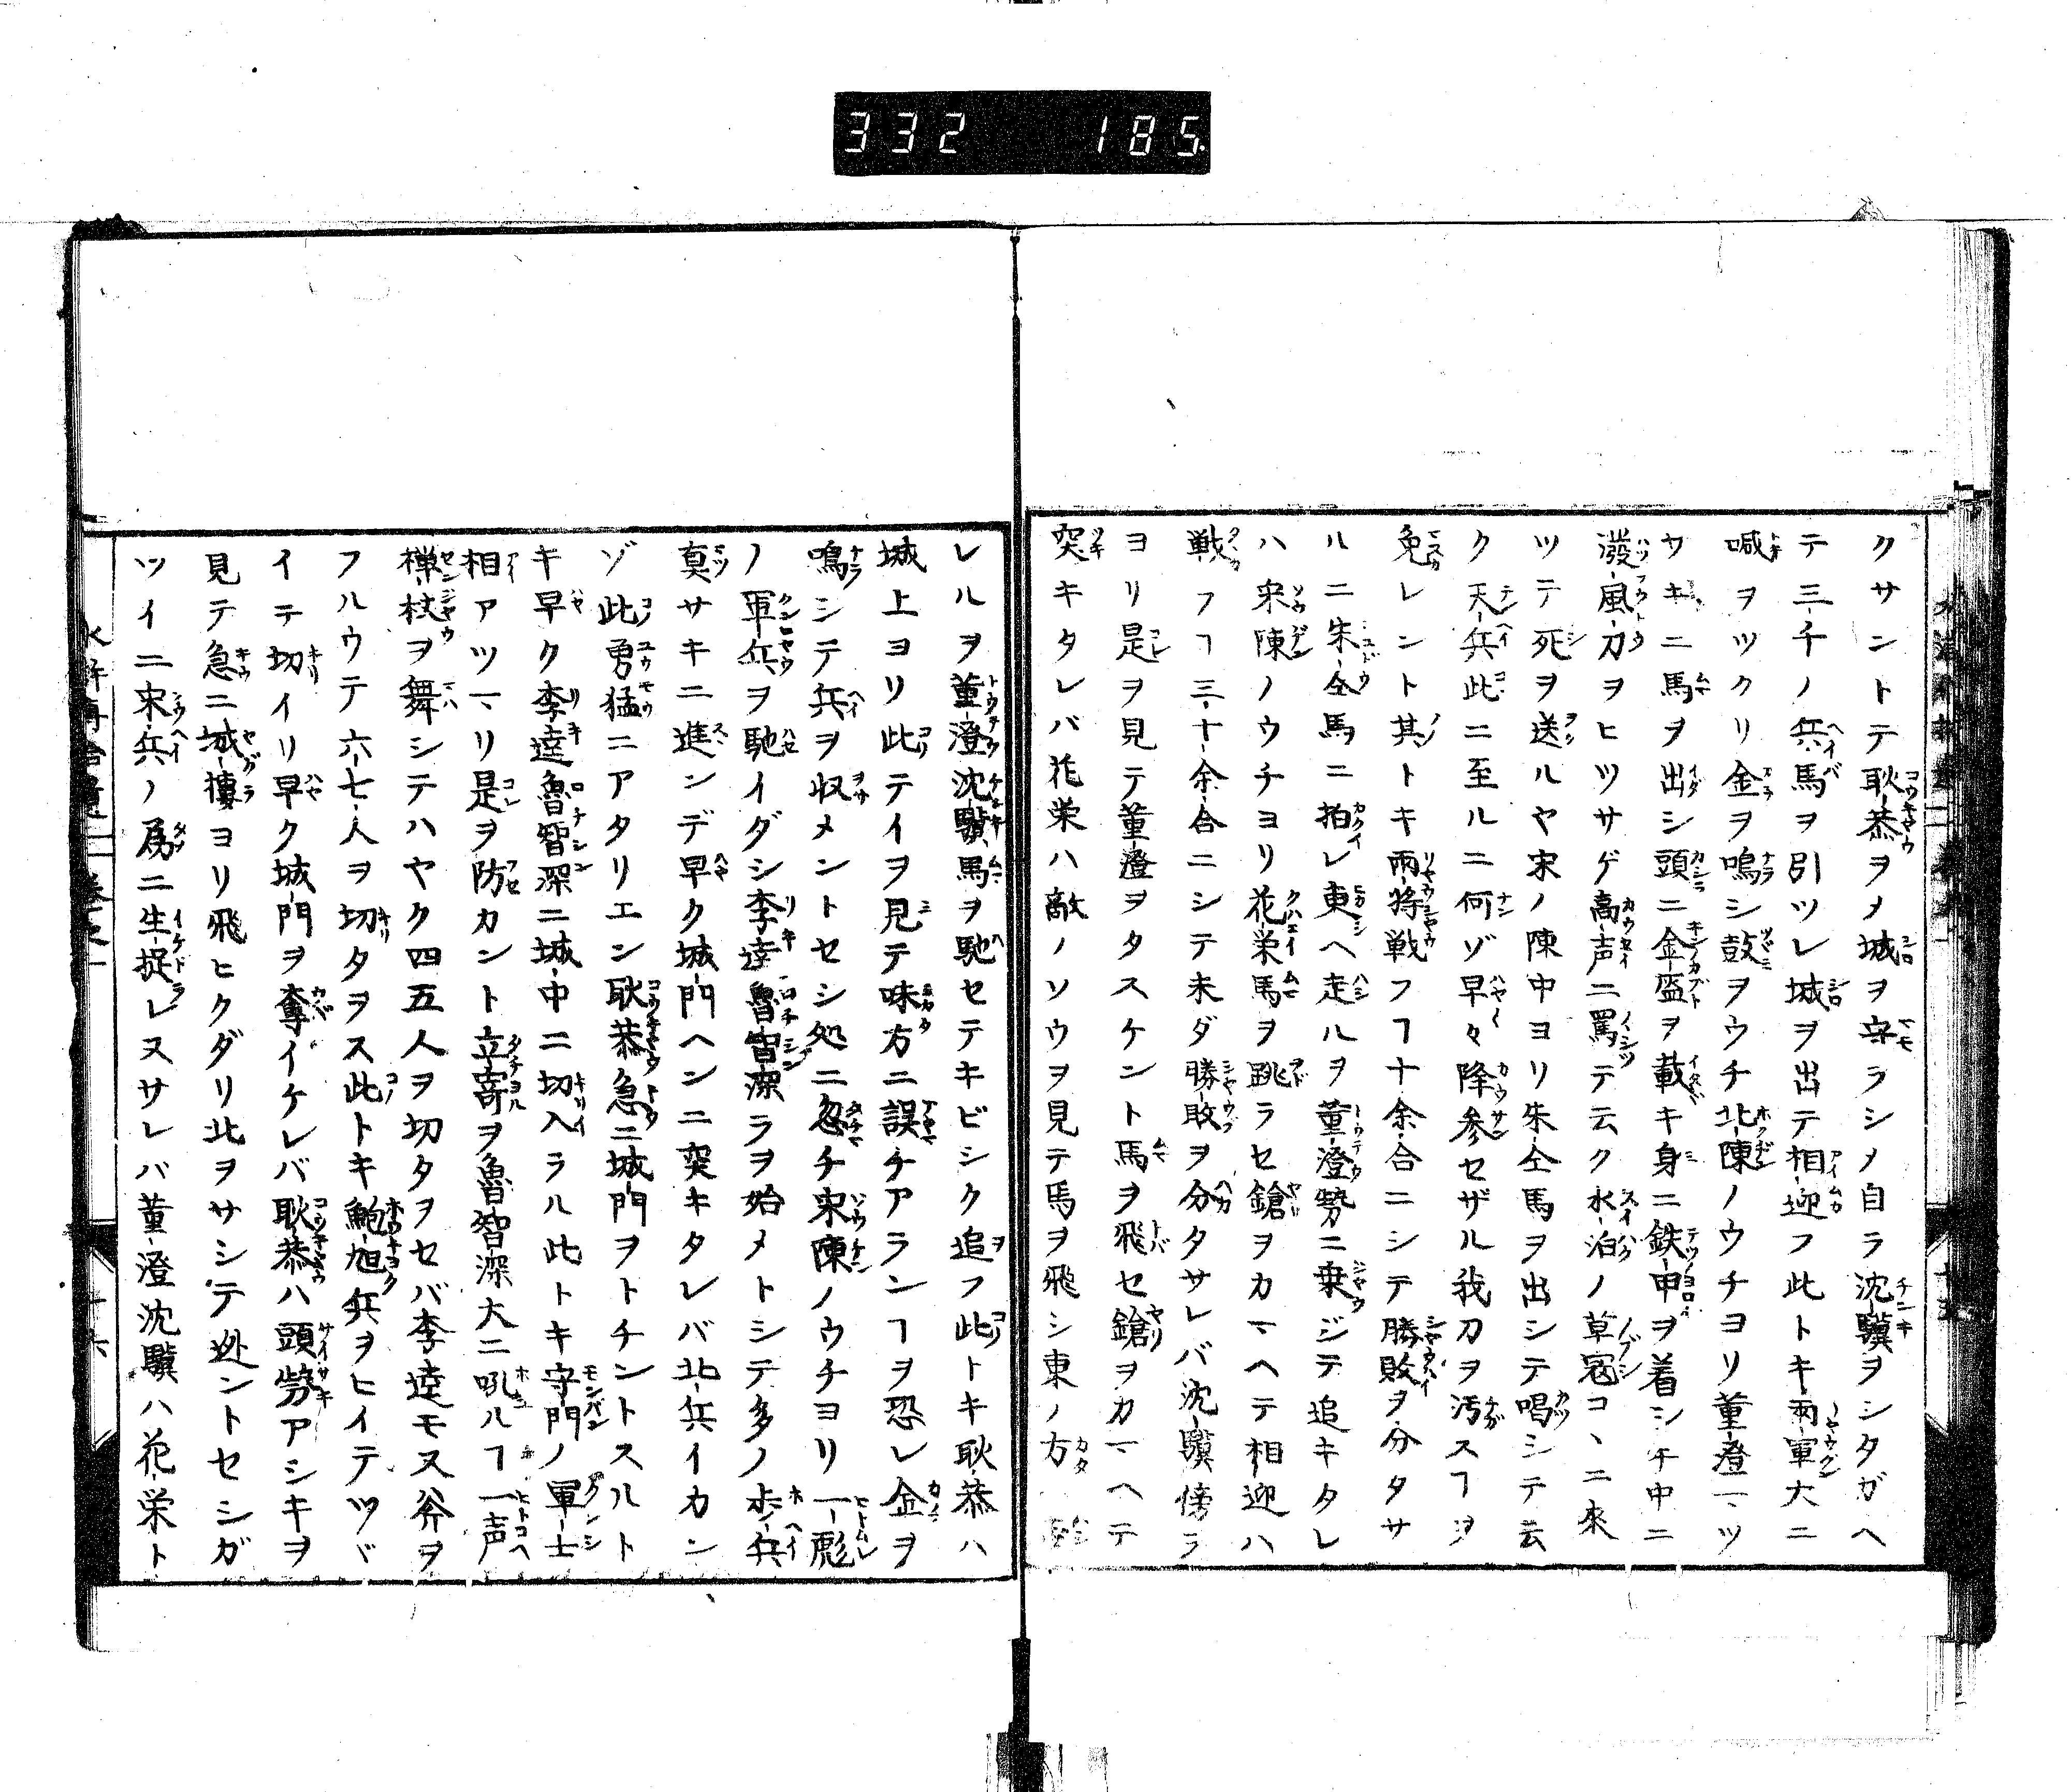 332 185
クサントテ耿恭ヲメ城ヲ守ラシメ自ラ沈驥ヲシタガヘ
テ三千ノ兵馬ヲ引ツレ城ヲ出テ相迎フ此トキ両軍大ニ
喊ヲツクリ金ヲ鳴シ鼓ヲウチ北陳ノウチヨリ董澄マツ
サキニ馬ヲ出シ頭ニ金盔ヲ載キ身ニ鉄甲ヲ着シ手中ニ
溌風刀ヲヒツサゲ高声ニ罵テ云ク水泊ノ草冦コヽニ來
ツテ死ヲ送ルヤ宋ノ陳中ヨリ朱仝馬ヲ出シテ喝シテ云
ク天兵此ニ至ルニ何ゾ早々降参セザル我刀ヲ汚スヿヲ
免レント其トキ両将戦フヿ十余合ニシテ勝敗ヲ分タサ
ルニ朱仝馬ニ拍レ東ヘ走ルヲ董澄勢ニ乗ジテ追キタレ
ハ宋陳ノウチヨリ花栄馬ヲ跳ラセ鎗ヲカマヘテ相迎ハ
戦フヿ三十余合ニシテ未ダ勝敗ヲ分タサレバ沈驥傍ラ
ヨリ是ヲ見テ董澄ヲタスケント馬ヲ飛セ鎗ヲカマヘテ
突キタレバ花栄ハ敵ノソウヲ見テ馬ヲ飛シ東ノ方
レルヲ董澄沈驥馬ヲ馳セテキビシク追フ此トキ耿恭ハ
城上ヨリ此テイヲ見テ味方ニ誤チアランヿヲ恐レ金ヲ
鳴シテ兵ヲ収メントセシ処ニ忽チ宋陳ノウチヨリ一彪
ノ軍兵ヲ馳イダシ李逵魯智深ラヲ始メトシテ多ノ歩兵
真サキニ進ンデ早ク城門ヘンニ突キタレバ北兵イカン
ゾ此勇猛ニアタリエン耿恭急ニ城門ヲトチントスルト
キ早ク李逵魯智深ニ城中ニ切入ラル此トキ守門ノ軍士
相アツマリ是ヲ防カント立寄ヲ魯智深大ニ吼ルヿ一声
禅杖ヲ舞シテハヤク四五人ヲ切タヲセバ李逵モ又斧ヲ
フルウテ六七人ヲ切タヲス此トキ鮑旭兵ヲヒイテツヾ
イテ切イリ早ク城門ヲ奪イケレバ耿恭ハ頭勢アシキヲ
見テ急ニ城樓ヨリ飛ヒクダリ北ヲサシテ迯ントセシガ
ツイニ宋兵ノ為ニ生捉レヌサレバ董澄沈驥ハ花栄ト